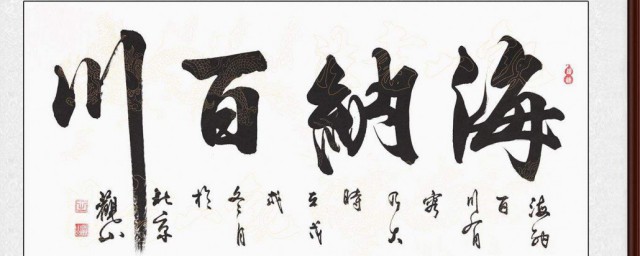 海納百川
海納
百
川有
容
乃大
時
在戊
戌
冬月
於
北京
觀山